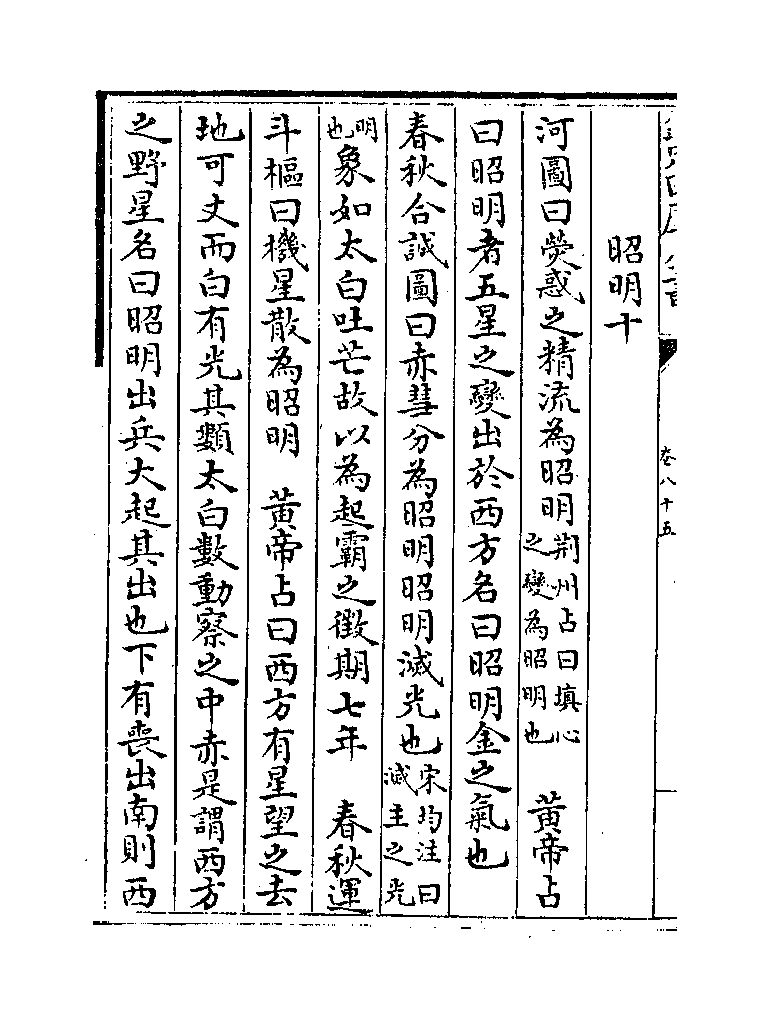 卷八十五
昭明十
河圖曰熒惑之精流為昭明荆州占曰填心之變為昭明也 黃帝占
曰昭明者五星之變出於西方名曰昭明金之氣也
春秋合誠圖曰赤彗分為昭明昭明滅光也宋均注曰滅主之光
明也象如太白吐芒故以為起霸之徵期七年 春秋運
斗樞曰機星散為昭明 黃帝占曰西方有星望之去
地可丈而白有光其類太白數動察之中赤是謂西方
之野星名曰昭明出兵大起其出也下有喪出南則西